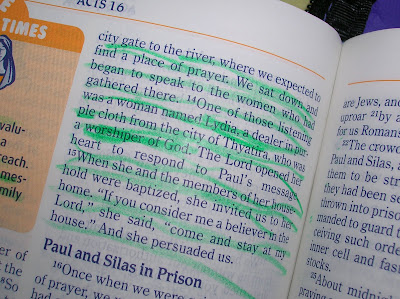 ACTS 16
TIMES
valu-
a
each.
mes-
amily
er of
the
So
had
city gate to the river, where we expected to
find a place of prayer. We sat down and
began to speak to the women who had
gathered there. 14One of those listening
was a woman named Lydia, a dealer in pur-
ple cloth from the city of Thyatira, who was
a worshiper of God. The Lord opened her
heart to respond to Paul's message.
15When she and the members of her house-
hold were baptized, she invited us to her
home. "If you consider me a believer in the
Lord," she said, "come and stay at my
house." And she persuaded us.
Paul and Silas in Prison
16Once when we were
are Jews, and
uproar 21by a
for us Romans
22The crowd
Paul and Silas, a
them to be strip
they had been se
thrown into prison
manded to guard t
ceiving such order
inner cell and faste
stocks.
23About midnigh